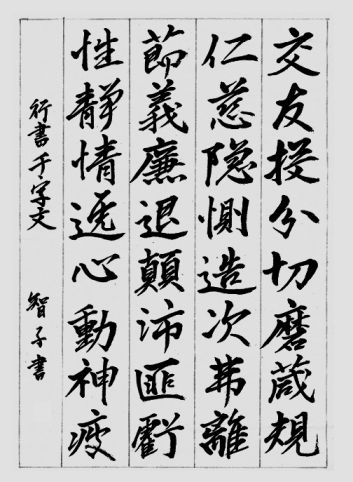 交友投分切磨箴規
仁慈隱惻造次弗離
節義廉退顛沛匪虧
性靜情逸心動神疲
行書千字文 智子書